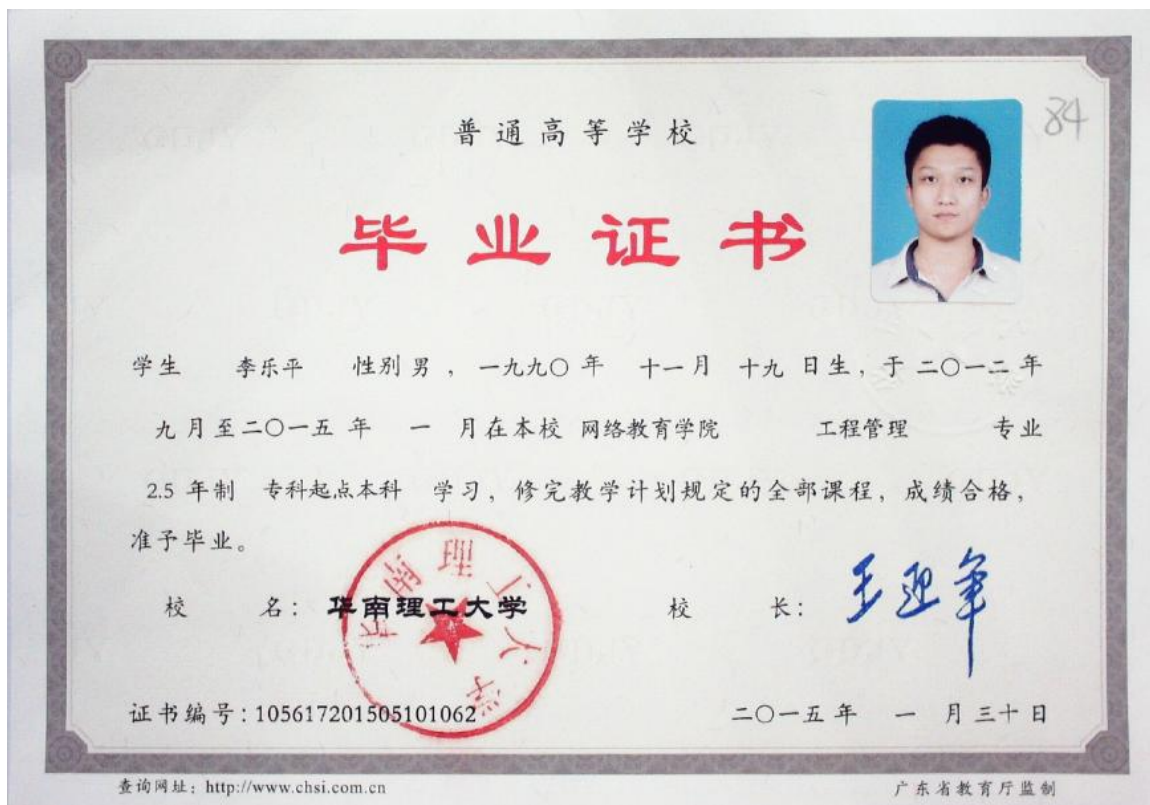 84
普通高等学校
毕业证书
学生 李乐平 性别 男 ，一九九〇 年 十一 月 十九 日生，于 二〇一二 年
九 月至 二〇一五 年 一 月在本校 网络教育学院 工程管理 专业
2.5 年制 专科起点本科 学习，修完教学计划规定的全部课程，成绩合格，
准予毕业。
校 名：华南理工大学 校 长：王迎军
华南理工大学
证书编号：105617201505101062 二〇一五 年 一 月 三十 日
查询网址：http://www.chsi.com.cn 广东省教育厅监制